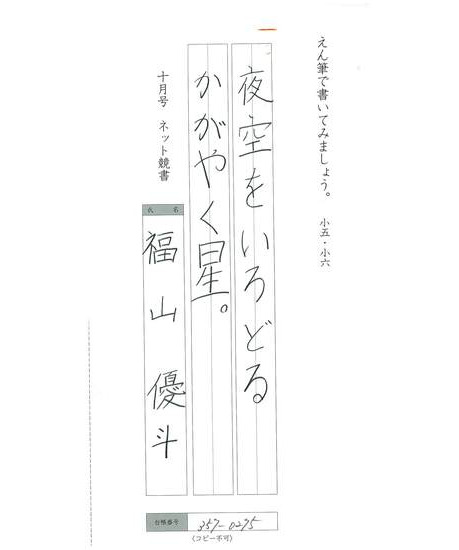 えん筆で書いてみましょう。 小五・小六
夜空をいろどる
かがやく星。
十月号 ネット競書
氏名
福山 優斗
台帳番号 357-0275
(コピー不可)